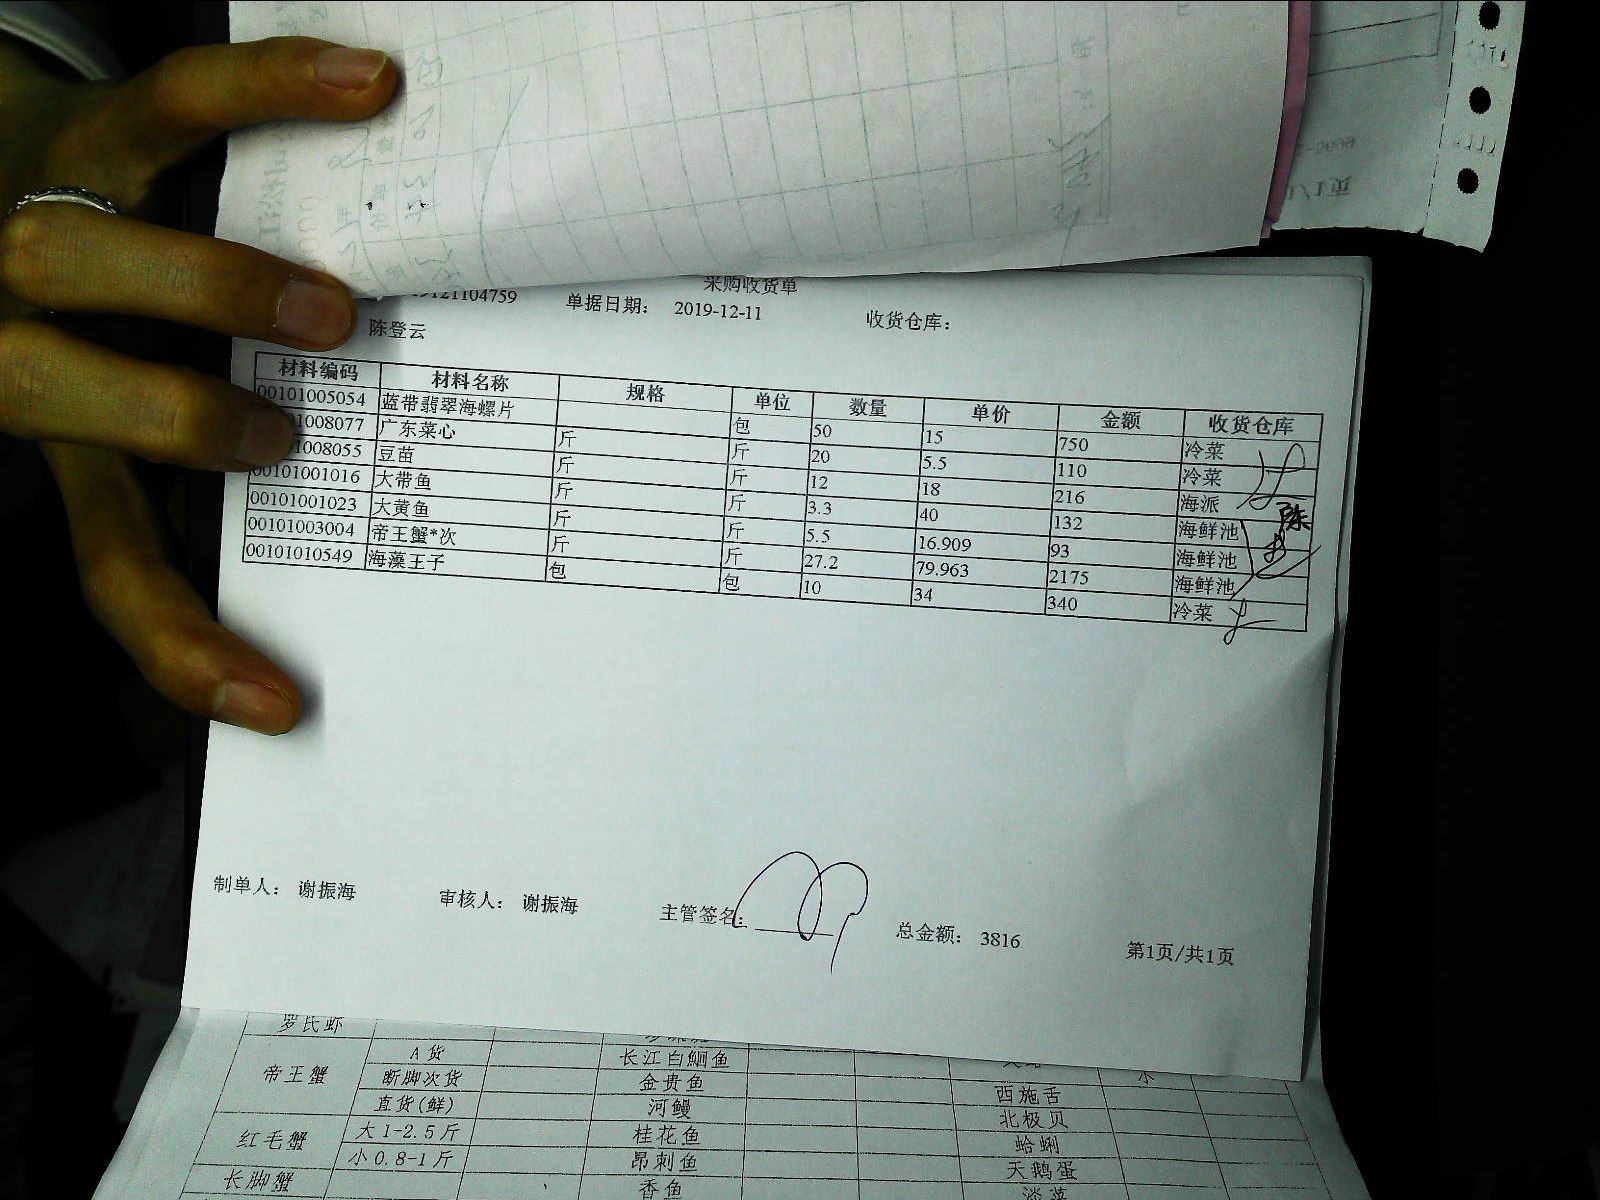 采购收货单
19121104759 单据日期: 2019-12-11 收货仓库:
陈登云
材料编码 材料名称 规格 单位 数量 单价 金额 收货仓库
00101005054 蓝带翡翠海螺片 包 50 15 750 冷菜
1008077 广东菜心 斤 斤 20 5.5 110 冷菜
1008055 豆苗 斤 斤 12 18 216 海派
00101001016 大带鱼 斤 斤 3.3 40 132 海鲜池 陈
00101001023 大黄鱼 斤 斤 5.5 16.909 93 海鲜池
00101003004 帝王蟹*次 斤 斤 27.2 79.963 2175 海鲜池
00101010549 海藻王子 包 包 10 34 340 冷菜
制单人: 谢振海 审核人: 谢振海 主管签名: 总金额: 3816 第1页/共1页
罗氏虾
帝王蟹 A货 长江白鮰鱼 小
断脚次货 金贵鱼 西施舌
直货(鲜) 河鳗 北极贝
红毛蟹 大1-2.5斤 桂花鱼 蛤蜊
小0.8-1斤 昂刺鱼 天鹅蛋
长脚蟹 香鱼 淡菜